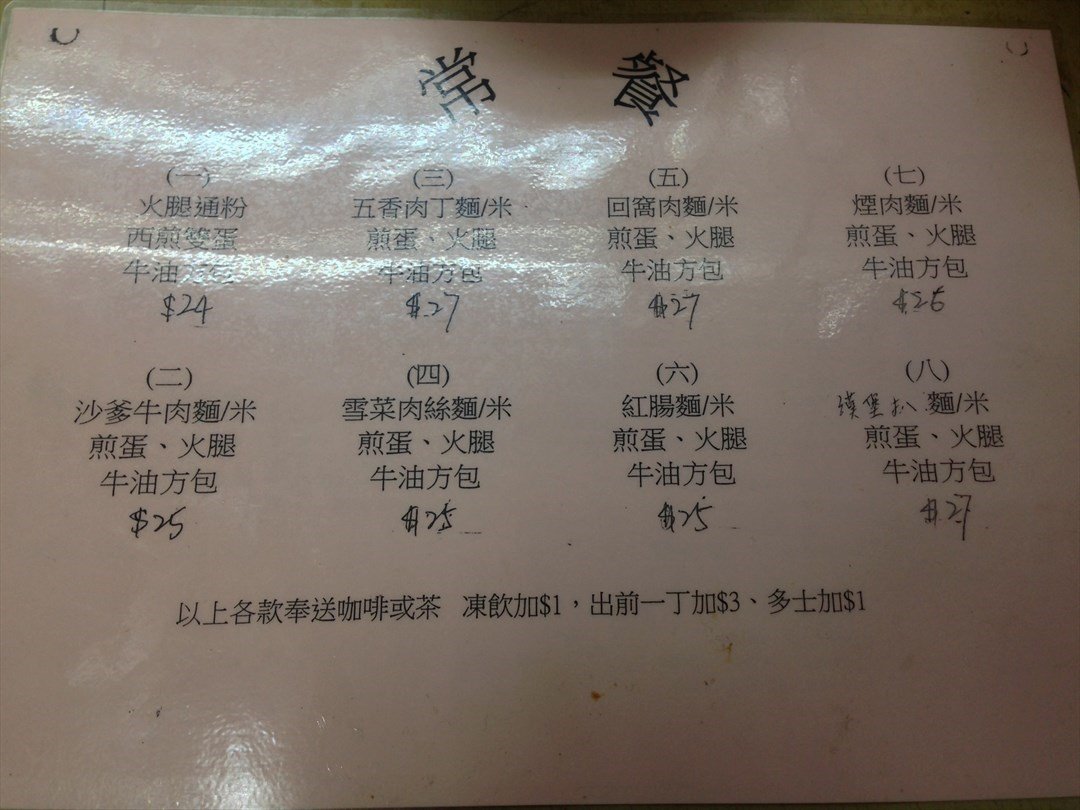 常餐
(一)
火腿通粉
西煎雙蛋
牛油方包
$24
(三)
五香肉丁麵/米
煎蛋、火腿
牛油方包
$27
(五)
回窩肉麵/米
煎蛋、火腿
牛油方包
$27
(七)
煙肉麵/米
煎蛋、火腿
牛油方包
$26
(二)
沙爹牛肉麵/米
煎蛋、火腿
牛油方包
$25
(四)
雪菜肉絲麵/米
煎蛋、火腿
牛油方包
$25
(六)
紅腸麵/米
煎蛋、火腿
牛油方包
$25
(八)
漢堡扒麵/米
煎蛋、火腿
牛油方包
$27
以上各款奉送咖啡或茶 凍飲加$1，出前一丁加$3、多士加$1